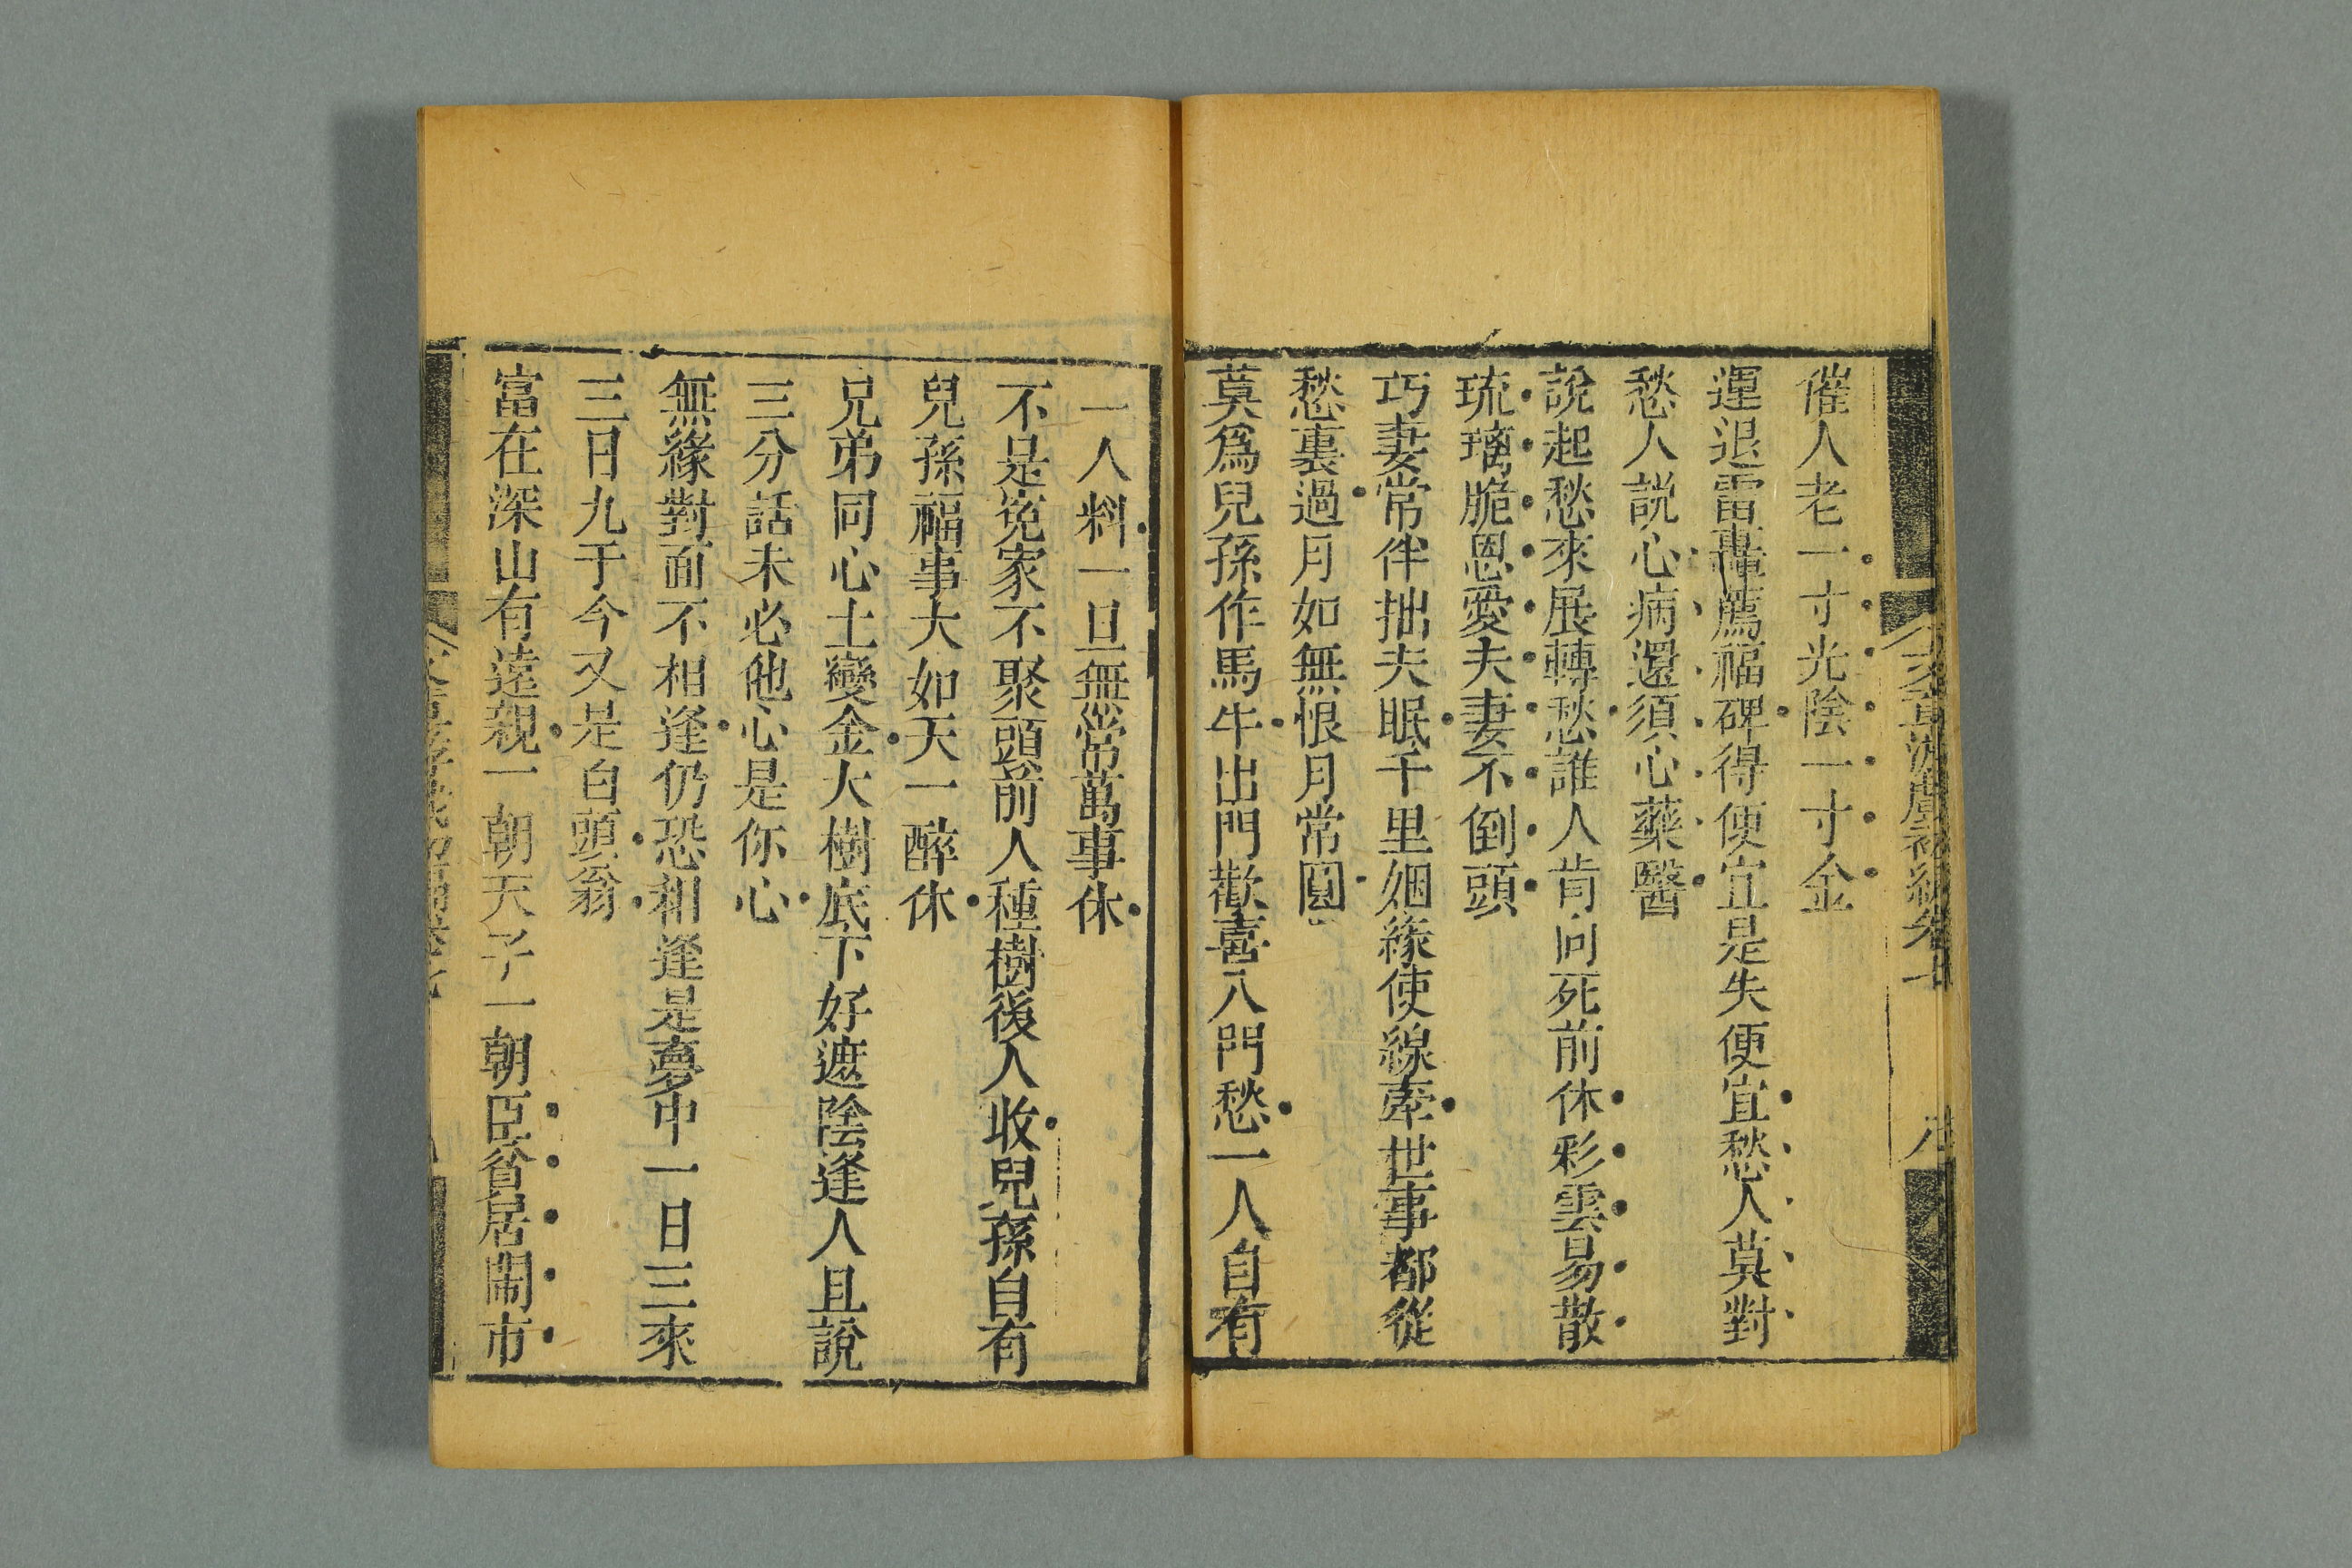 催人老一寸光陰一寸金
運退雷轟薦福碑得便宜是失便宜愁人莫對
愁人説心病還須心藥醫
說起愁來展轉愁誰人肯向死前休彩雲易散
琉璃脆恩愛夫妻不倒頭
巧妻常伴拙夫眠千里姻緣使線牽世事都從
愁裏過月如無恨月常圓
莫爲兒孫作馬牛出門歡喜入門愁一人自有
一人料一旦無常萬事休
不是寃家不聚頭前人種樹後人收兒孫自有
兒孫福事大如天一醉休
兄弟同心土變金大樹底下好遮陰逢人且說
三分話未必他心是你心
無緣對面不相逢仍恐相逢是夢中一日三來
三日九于今又是白頭翁
富在深山有遠親一朝天子一朝臣貧居鬧市